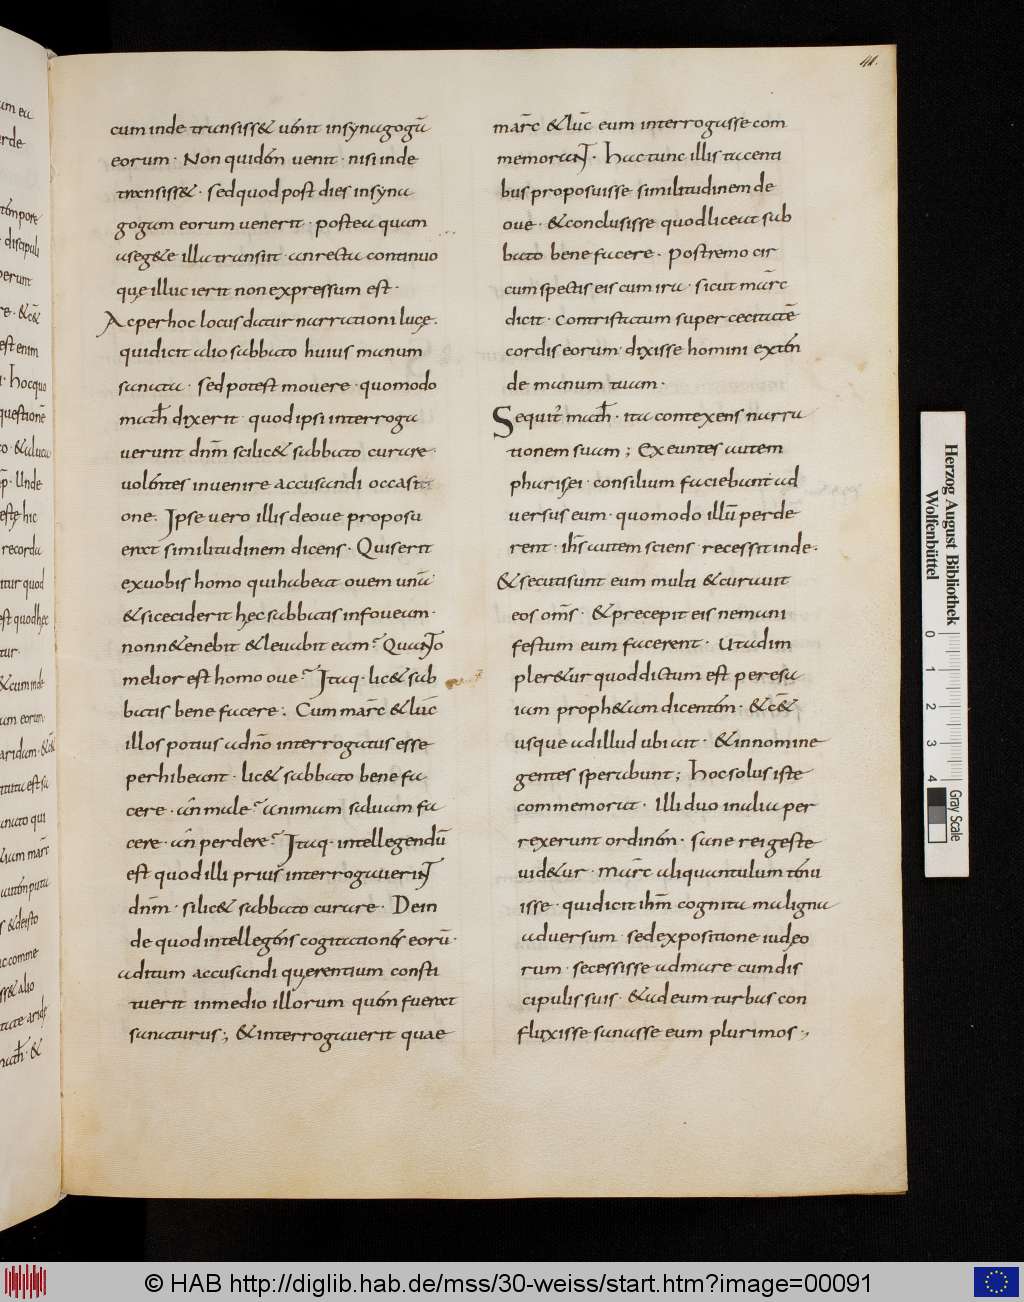 41.
cum inde transiss& uenit insynagogā
eorum · Non quidem uenit · nisi inde
transiss& · sed quod post dies insyna
gogam eorum uenerit · postea quam
aseg&e illa transiit · an recta continuo
quę illuc ierit non expressum est ·
Ac per hoc locus datur narrationi lucę ·
qui dicit alio sabbato huius manum
sanata · sed potest mouere · quomodo
math dixerit · quod ipsi interroga
uerunt dnm̄ si lic& sabbato curare ·
uolentes inuenire accusandi occasi
one · Ipse uero illis de oue proposu
erat similitudinem dicens · Quis erit
ex uobis homo qui habeat ouem unā
& si ceciderit hęc sabbatis in foueam ·
nonn& enebit & leuabit eam? Quanto
melior est homo oue? Itaq · lic& sab
batis bene facere : Cum marc̄ & luc̄
illos potius a dn̄o interrogatus esse
perhibeant · lic& sabbato bene fa
cere · an male? animam saluam fa
cere · an perdere? Itaq · intellegendū
est quod illi prius interrogauerint
dnm̄ · si lic& sabbato curare · Dein
de quod intellegens cogitationes eorū ·
aditum accusandi quęrentium consti
tuerit in medio illorum quem fuerat
sanaturus ; & interrogauerit quae
marc̄ & luc̄ eum interrogasse com
memorant · hac tunc illis tacenti
bus proposuisse similitudinem de
oue · & conclusisse quod liceat sab
bato bene facere · postremo cir
cumspectis eis cum ira · sicut marc̄
dicit · contristatum super cecitatē
cordis eorum dixisse homini exten
de manum tuam ·
Sequitꝰ math · ita contexens narra
tionem suam ; Exeuntes autem
pharisęi · consilium faciebant ad
uersus eum · quomodo illū perde
rent · ih̄s autem sciens · recessit inde :
& secuti sunt eum multi & curauit
eos om̄s · & precepit eis ne mani
festum eum facerent · ut adim
pler&ur quod dictum est per esa
iam proph&am dicentem · & c&
usque ad illud ubi ait · & in nomine
gentes sperabunt ; hoc solus iste
commemorat · Illi duo in alia per
rexerunt ordinem · sane rei geste
uid&ur · marc̄ aliquantulum tenu
isse · qui dicit ih̄m cognita maligna
aduersum · sed expositione iudęo
rum · secessisse ad mare cum dis
cipulis suis · & ad eum turbas con
fluxisse sanasse eum plurimos ·,
Herzog August Bibliothek
Wolfenbüttel
0 1 2 3 4
Gray Scale
© HAB http://diglib.hab.de/mss/30-weiss/start.htm?image=00091